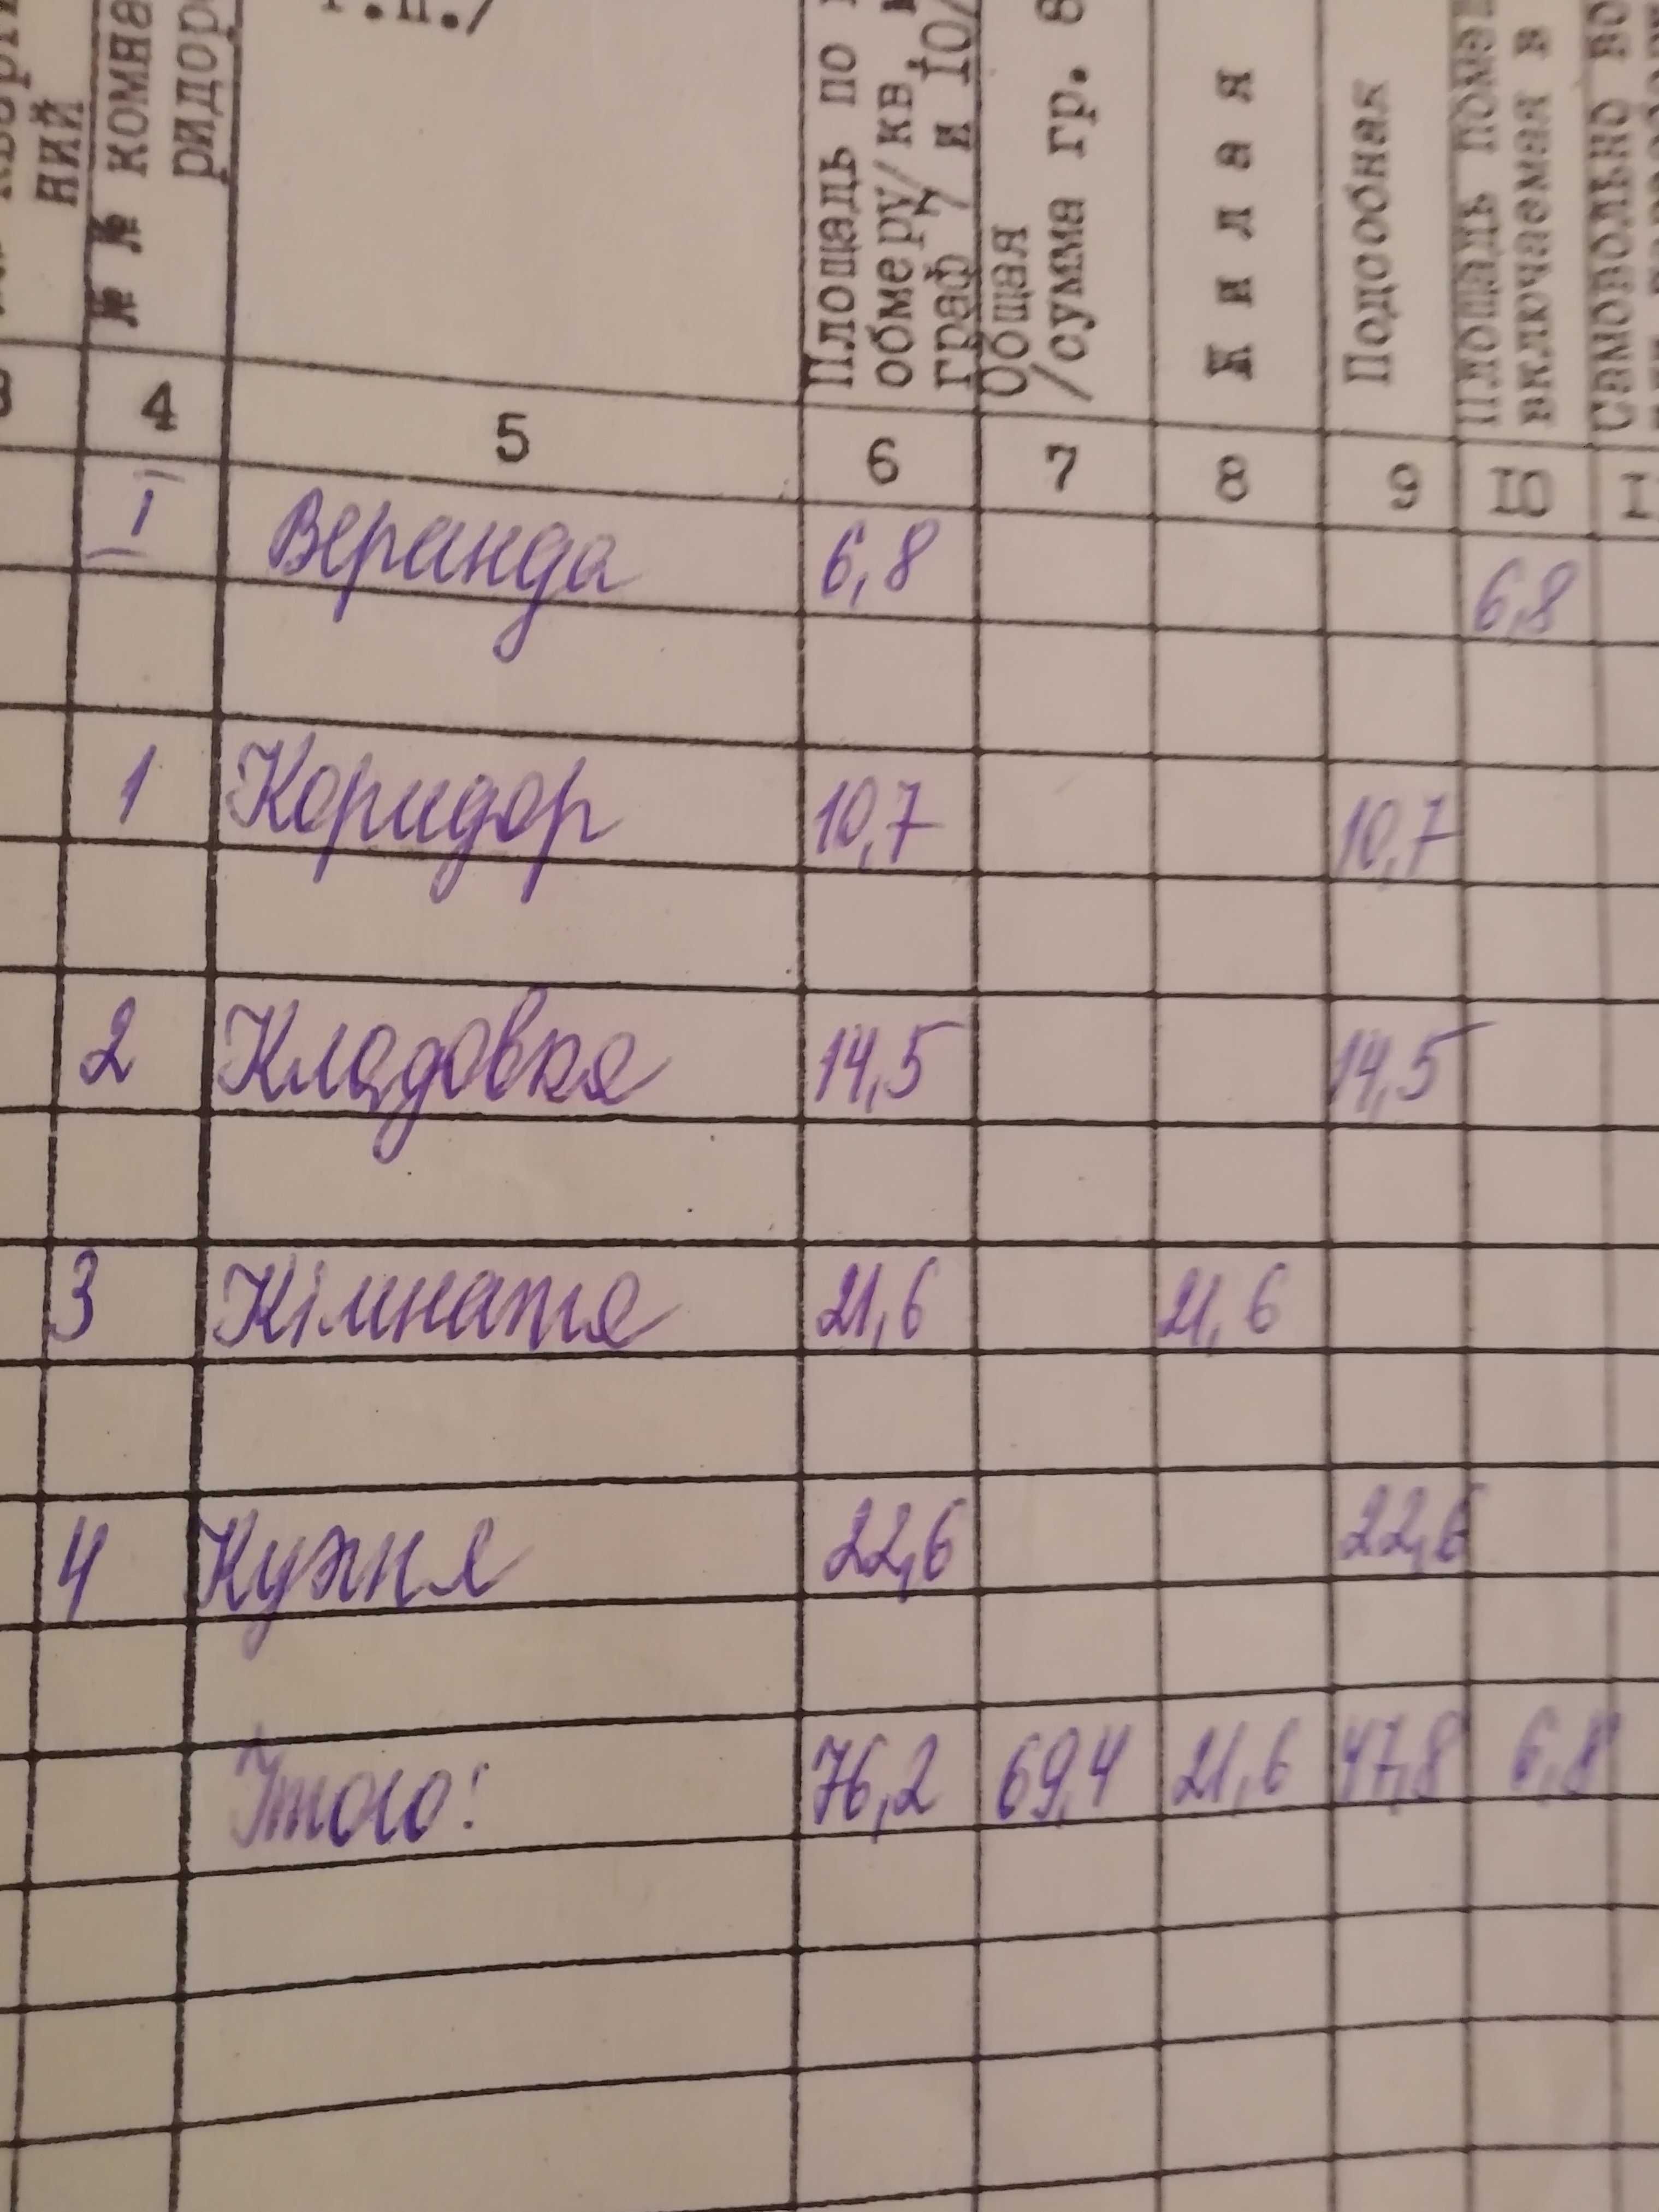 ний
№ № комна
ридор
Площадь по
обмеру/кв.
граф 7 и 10/
Общая
/сумма гр. 8
Жилая
Подсобная
Площадь поме
включаемая в
Самовольно во
4 5 6 7 8 9 10
I Веранда 6,8 6,8
1 Коридор 10,7 10,7
2 Кладовка 14,5 14,5
3 Кімната 21,6 21,6
4 Кухня 22,6 22,6
Итого: 76,2 69,4 21,6 47,8 6,8